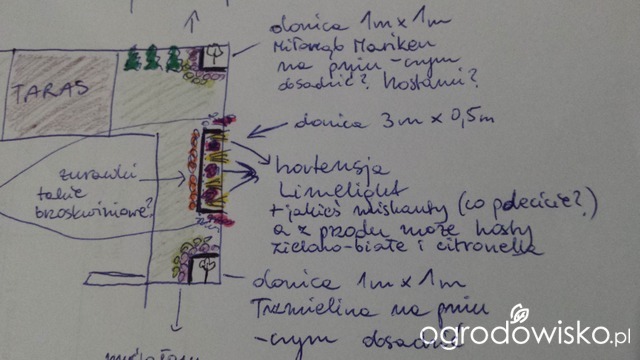 donica 1m x 1m
Miłorząb Mariken
na pniu - czym
obsadzić? hostami?
TARAS
donica 3m x 0,5m
żurawki
takie
brzoskwiniowe?
hortensja
Limelight
+ jakieś miskanty (co polecicie?)
a z przodu może hosty
zielono-białe i citronella
donica 1m x 1m
Trzmielina na pniu
- czym obsadzić
ogrodowisko.pl